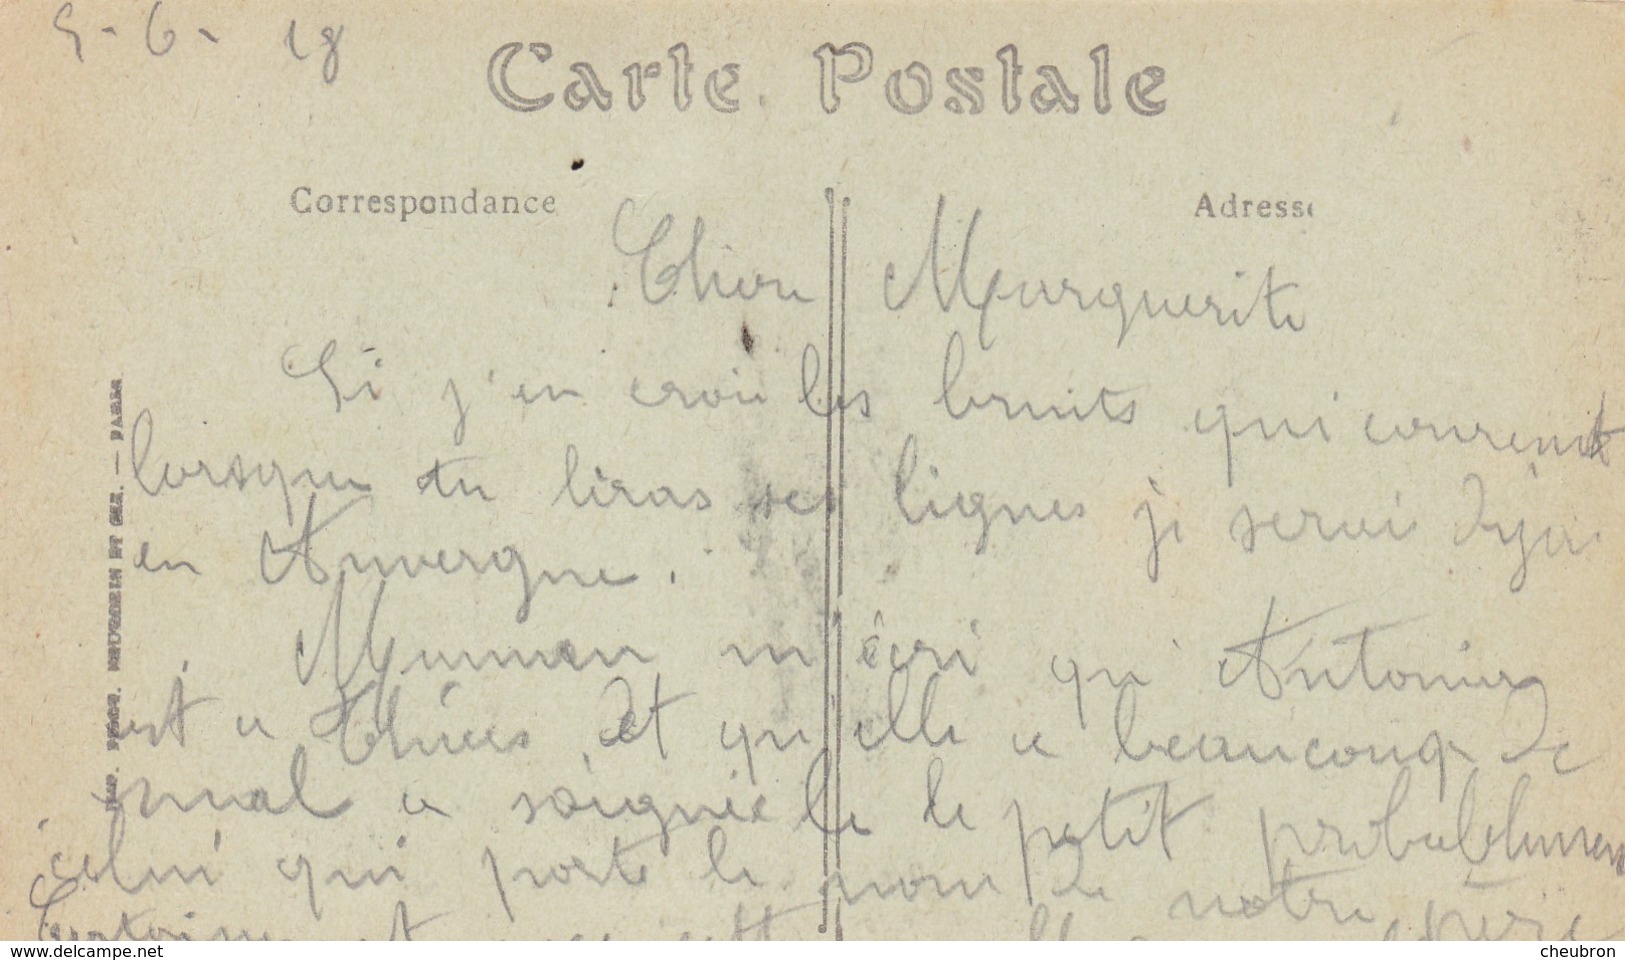 5-6-18
Carte Postale
Correspondance
Adresse
Chere Marguerite
Si j'en croie les bruits qui courrent
lorsque tu liras ses lignes je serai deja
en Auvergne.
Maman m'écri qu' Antonia
est a Thiers et qu'elle a beaucoup de
mal a soignée le le petit probablement
celui qui porte le nom de notre père
IMP. PHOT. NEURDEIN ET CIE. — PARIS
www.delcampe.net
cheubron